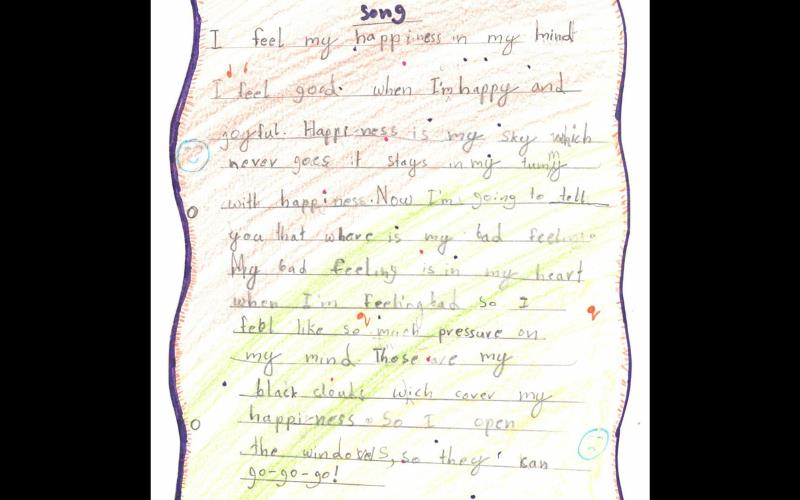 song
I feel my happiness in my mind
I feel good when I'm happy and
joyful. Happiness is my sky which
never goes it stays in my tummy
with happiness. Now I'm going to tell
you that where is my bad feeling
My bad feeling is in my heart
when I'm feeling bad so I
feel like so much pressure on
my mind. Those are my
black clouds wich cover my
happiness. So I open
the windows, so they can
go-go-go!